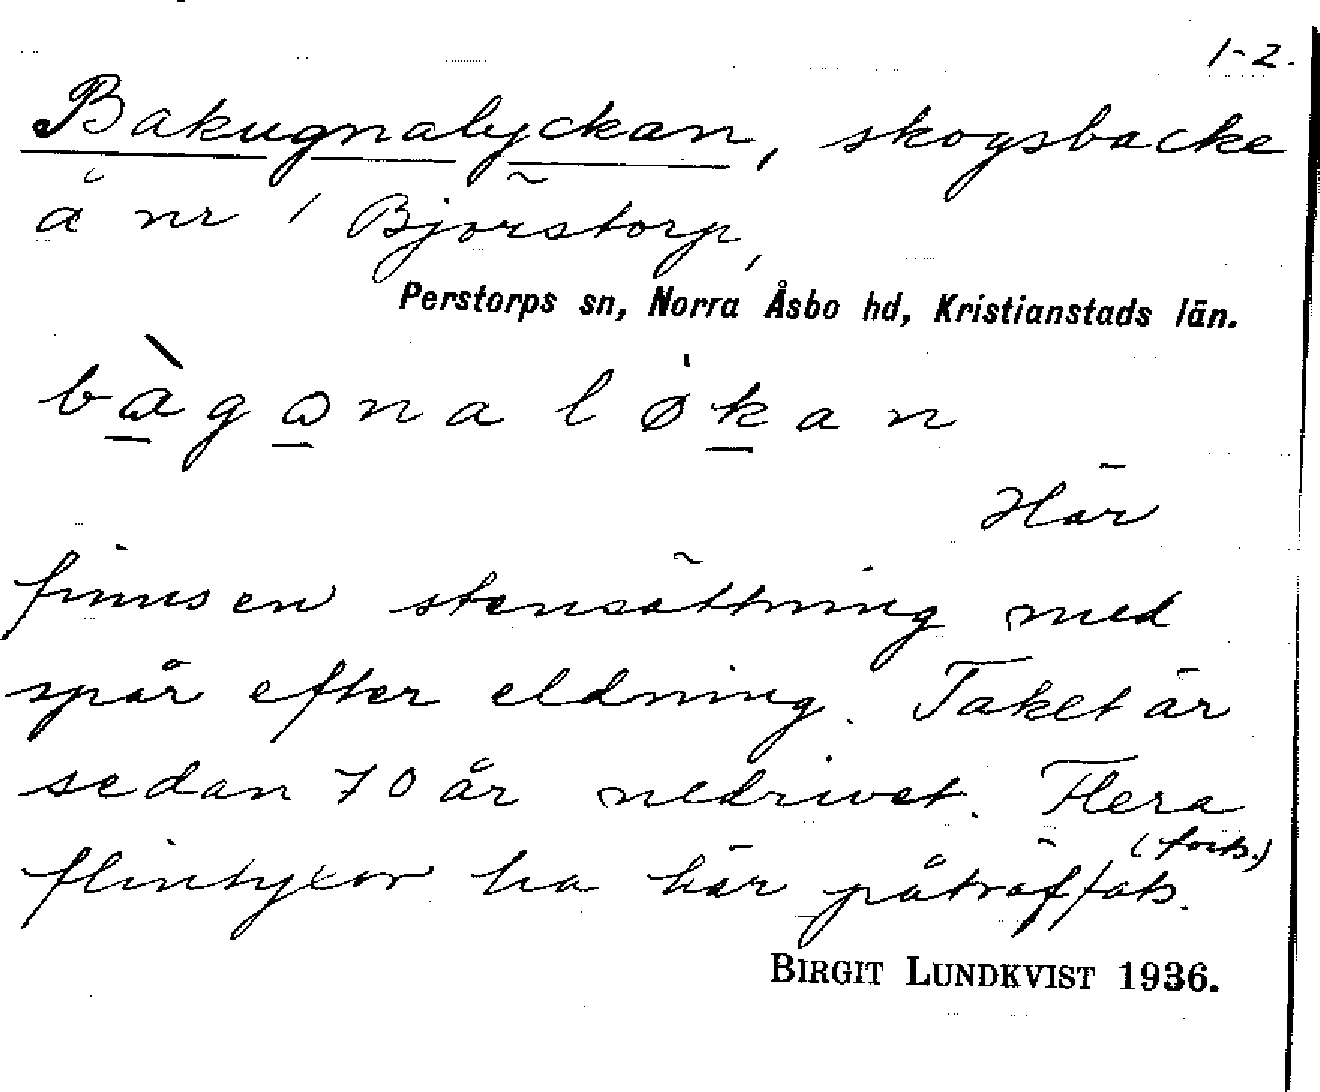 1-2.
Bakugnalyckan, skogsbacke
å nr 1 Björstorp,
Perstorps sn, Norra Åsbo hd, Kristianstads län.
bàgonaløkan
Här
finns en stensättning med
spår efter eldning. Taket är
sedan 70 år nedrivet. Flera
flintyxor ha här påträffats.
(forts.)
BIRGIT LUNDKVIST 1936.